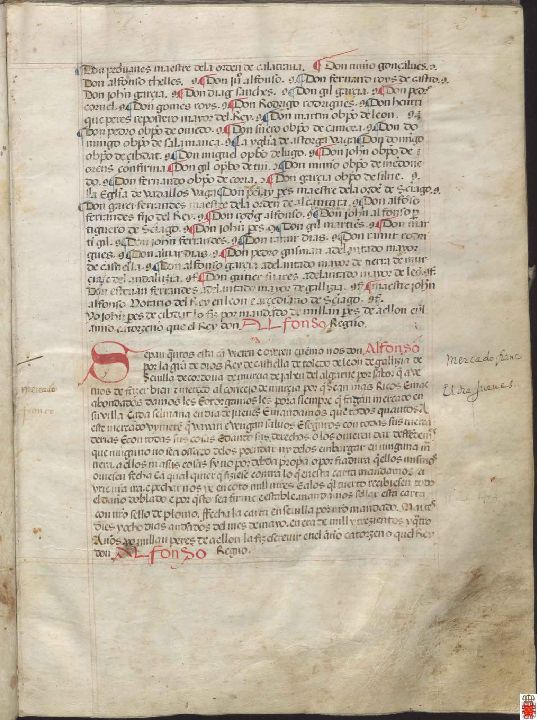 Don pedruanes maestre dela orden de calatraua. Don nuño gonçalues.
Don alfonso thelles. Don Jun alfonso. Don fernando royz de castro.
Don john garcia. Don diag sanches. Don gil garcia. Don pedro
cornel. Don gomes royz. Don Rodrigo rodrigues. Don henrri
que peres repostero mayor del Rey. Don martin obpo de leon.
Don pedro obpo de ouiedo. Don suero obpo de çamora. Don do
mingo obpo de salamanca. La yglia de astorga vaga Don domigo
obpo de cibdat. Don miguel opbo de lugo. Don john obpo de
orens confirma Don gil opbo de tui. Don nuño obpo de medone
do. Don fernando obpo de coria. Don garcia obpo de silue.
La Eglia de vadallos vaga Don pelay pes maestre dela orde de Sciago.
Don garci ferrandes maestre dela orden de alcantara. Don alfoso
ferrandes fijo del Rey. Don rodrig alfonso. Don john alfonso
tiguero de Sciago. Don john pes. Don gil martines. Don mar
ti gil. Don john ferrandes. Don ramir dias. Don ramir rodri
gues. Don aluar dias. Don pedro gusman adelantado mayor
de castiella. Don alfonso garcia adelantado mayor de tierra de mur
cia del andaluzia. Don gutier suares adelantado mayor de leon
Don esteuan ferrandes adelantado mayor de gallizia. maestre john
alfonso Notario del Rey en leon arcediano de Sciago.
Yo john pes de cibdat lo fiz por mandado de millan pes de aellon enl
anno catorzeno que el Rey don ALfonso Regno.
Sepan quantos esta carta vieren e oyeren cuemo nos don Alfonso
por la gracia de dios Rey de castiella de toledo de leon de gallizia de
Seuilla de cordoua de murcia de jahen del algarue por sabor que aue
mos de fazer bien e merced al concejo de murcia por que sean mas Ricos e mas
abondados damos les e otorgamos les pora siempre que fagan mercado en
su villa cada selmana en dia de jueues e mandamos que todos quantos a
este mercado vinieren que vayan e vengan saluos e seguros con todas sus merca
derias e con todas sus cosas e dando sus derechos o los ouieren dar e defendem
que ninguno no sea ossado delos peyndrar ny delos embargar en ninguna ma
nera a ellos ni a sus cosas synon por debda propia o por fiadura que ellos mismos
ouiesen fecha Ca qual quier que fiziese contra lo que en esta carta mandamos
ye nuestra yra e pechar nos ye en coto mill mr e alos que el tuerto recibiesen todo
el danno doblado e por que esto sea firme e estable mandamos sellar esta carta
con nuestro sello de plomo. ffecha la carta en seuilla por nuestro mandado. Martes
dies e ocho dias andados del mes de mayo. en era de mill e trezientos e quatro
Annos yo millan peres de aellon la fiz escreuir en el anno catorzeno que el Rey
don ALfonso Regno.
mercado
franco
mercado franc
El dia Jueues.